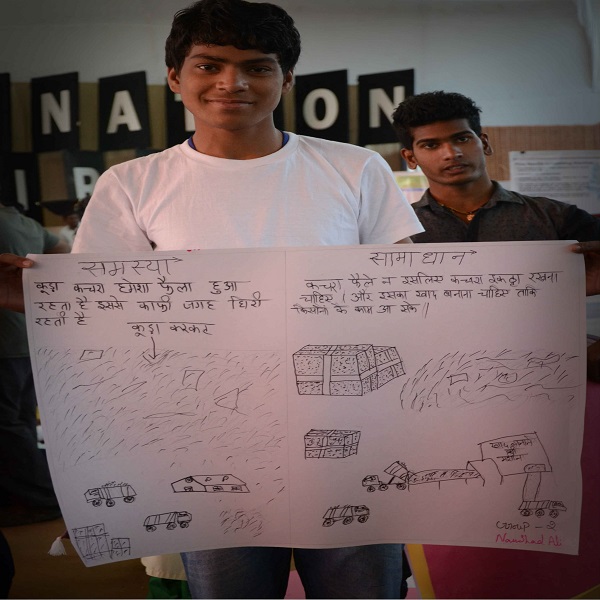 NATION
समस्या
कूड़ा कचरा हमेशा फैला हुआ
रहता है इससे काफी जगह घिरी
रहती है
कूड़ा करकट
सामाधान
कचरा फैले न इसलिए कचरा इकठ्ठा रखना
चाहिए। और इसका खाद बनाना चाहिए ताकि
किसानो के काम आ सके।।
खाद बनाने
की
मशीन
Group - 2
Naushad Ali